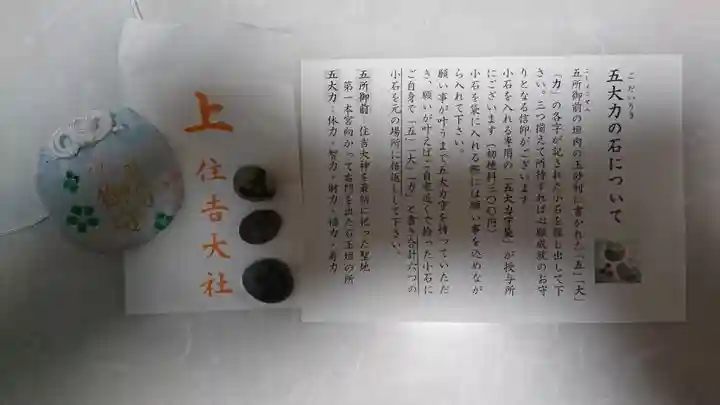 五大力の石について
ごだいりき
五所御前の垣内の玉砂利に書かれた「五」「大」
ごしょごぜん
「力」の各字が記された小石を探し出して下
さい。三つ揃えて所持すれば心願成就のお守
りとなる信仰がございます
小石を入れる専用の「五大力守袋」が授与所
にございます(初穂料三〇〇円)
小石を袋に入れる際には願い事を込めなが
ら入れて下さい。
願い事が叶うまで五大力守を持っていただ
き、願いが叶えばご自宅近くで拾った小石に
ご自身で「五」「大」「力」と書き合計六つの
小石を元の場所に倍返しして下さい。
五所御前・住吉大神を最初に祀った聖地
第一本宮向かって右門を出た石玉垣の所
五大力・体力・智力・財力・福力・寿力
上
住吉大社